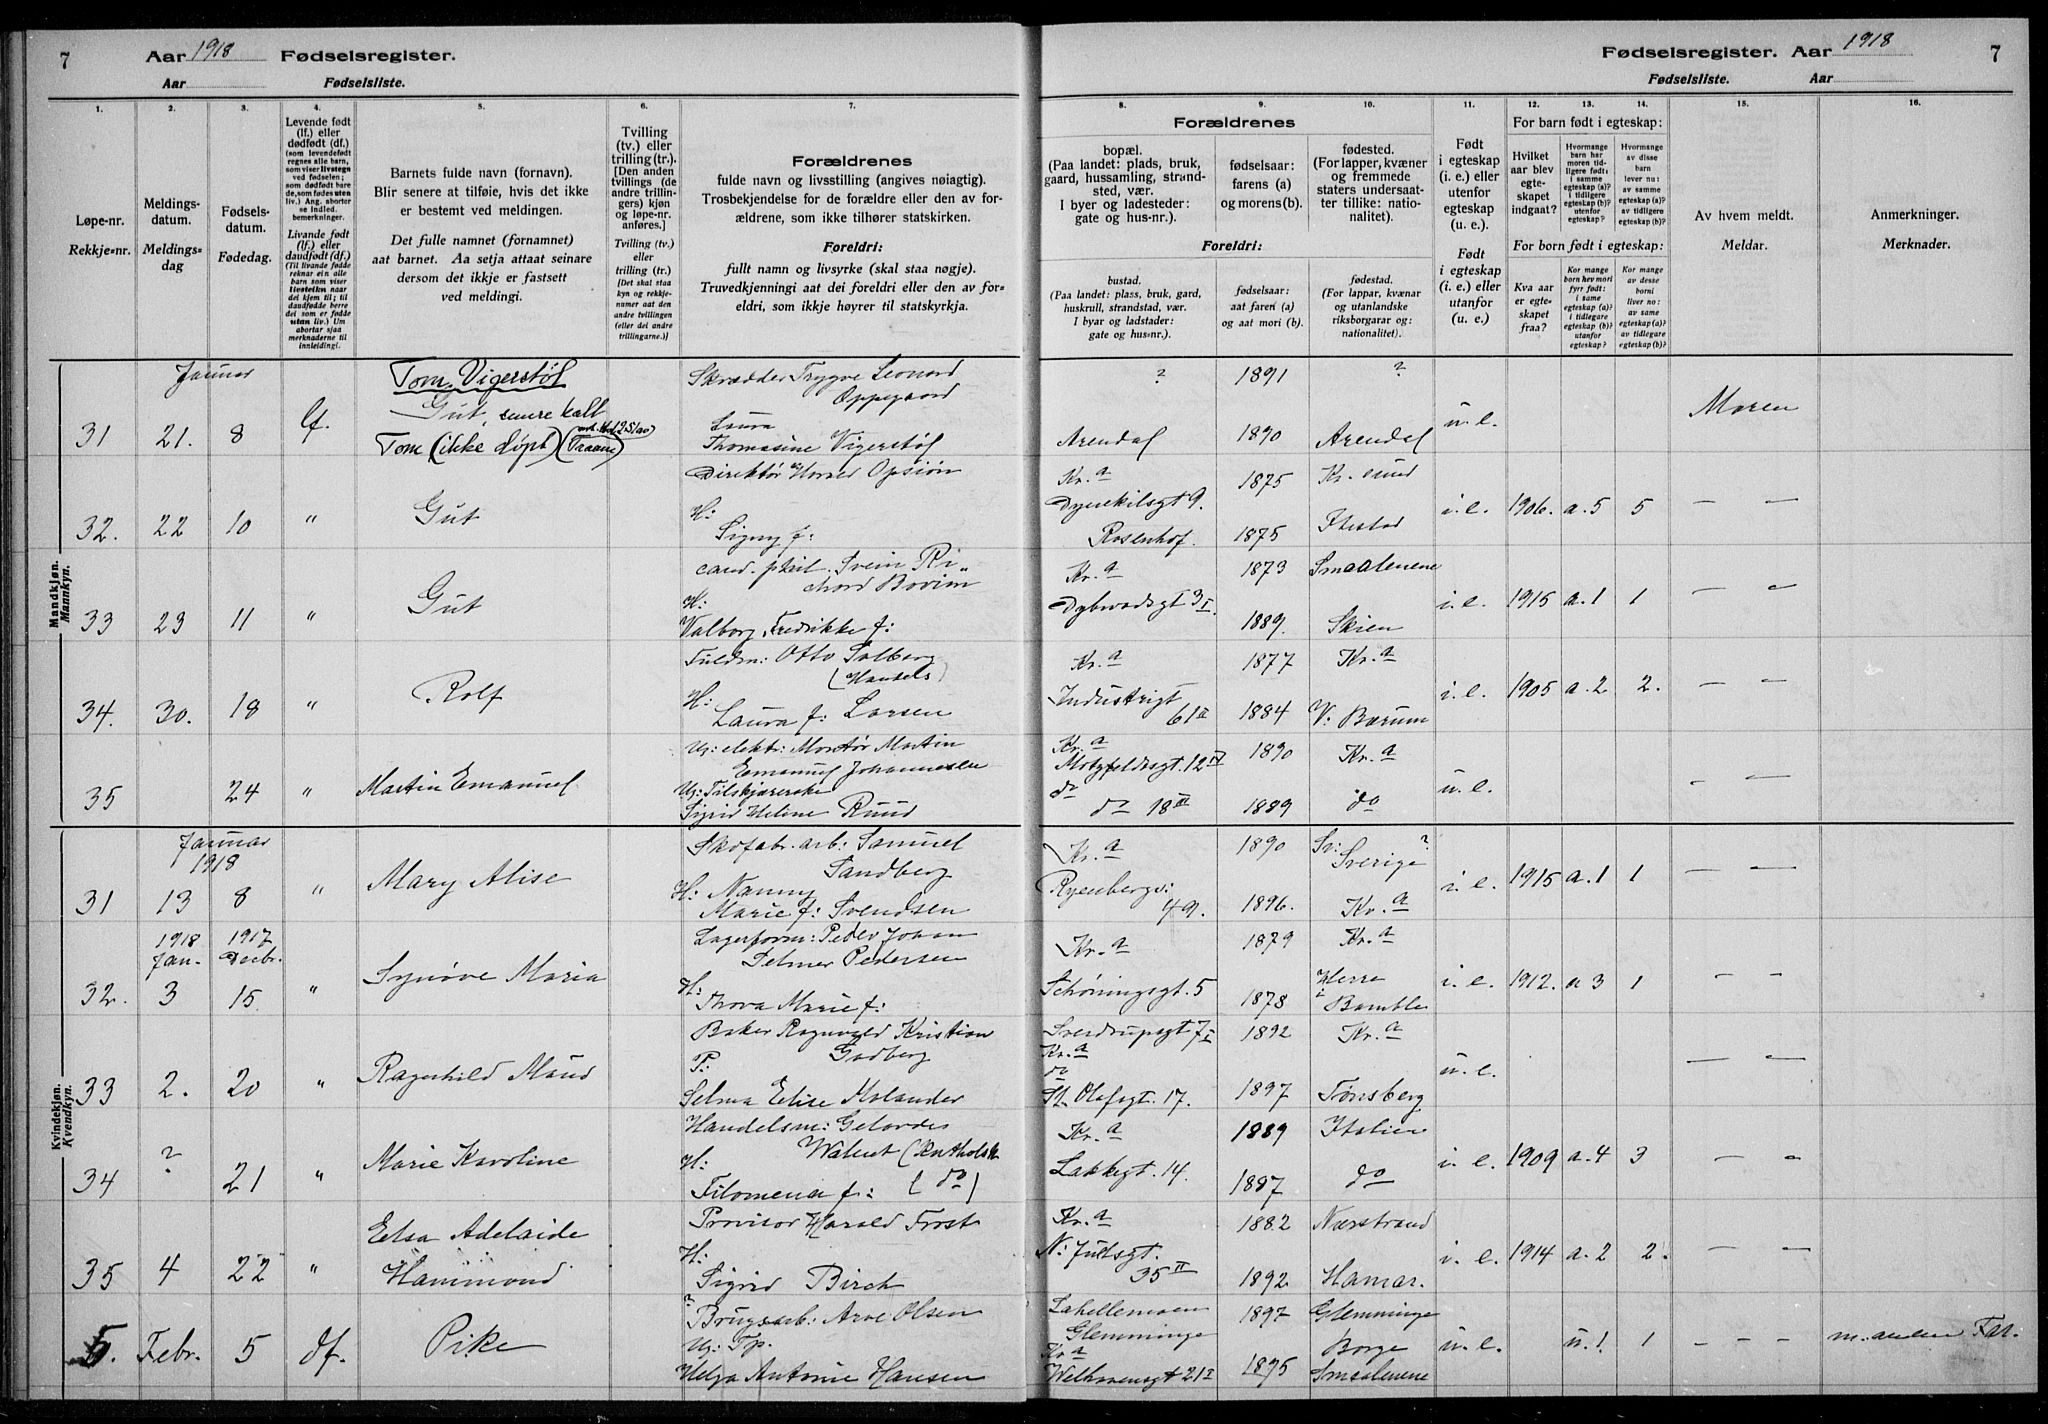 7 Aar 1918 Fødselsregister.
Aar Fødselsliste.
Fødselsregister. Aar 1918 7
Fødselsliste. Aar
1. 2. 3. 4. 5. 6. 7. 8. 9. 10. 11. 12. 13. 14. 15. 16.
Løpe-nr.
Rekkje-nr.
Meldings-
datum.
Meldings-
dag
Fødsels-
datum.
Fødedag.
Levende født
(lf.) eller
dødfødt (df.)
(som levendefødt
regnes alle barn,
som viser livstegn
ved fødselen;
som dødfødt bare
de, som fødes uten
liv.) Ang. aborter
se indled.
bemerkninger.
Livande født
(lf.) eller
daudfødt (df.)
(Til livande fødde
reknar ein alle
barn som viser
livsteikn naar
dei kjem til; til
daudfødde berre
dei som er fødde
utan liv.) Um
abortar sjaa
merknaderne til
innleidingi.
Barnets fulde navn (fornavn).
Blir senere at tilføie, hvis det ikke
er bestemt ved meldingen.
Det fulle namnet (fornamnet)
aat barnet. Aa setja attaat seinare
dersom det ikkje er fastsett
ved meldingi.
Tvilling
(tv.) eller
trilling (tr.).
[Den anden
tvillings (de
andre trillin-
gers) kjøn
og løpe-nr.
anføres.]
Tvilling (tv.)
eller
trilling (tr.)
[Det skal staa
kyn og rekkje-
numer aat den
andre tvillingen
(eller dei andre
trillingarne.)]
Forældrenes
fulde navn og livsstilling (angives nøiagtig).
Trosbekjendelse for de forældre eller den av for-
ældrene, som ikke tilhører statskirken.
Foreldri:
fullt namn og livsyrke (skal staa nøgje).
Truvedkjenningi aat dei foreldri eller den av for-
eldri, som ikkje høyrer til statskyrkja.
Forældrenes
bopæl.
(Paa landet: plads, bruk,
gaard, hussamling, strand-
sted, vær.
I byer og ladesteder:
gate og hus-nr.).
fødselsaar:
farens (a)
og morens (b).
fødested.
(For lapper, kvæner
og fremmede
staters undersaat-
ter tillike: natio-
nalitet).
Foreldri:
bustad.
(Paa landet: plass, bruk, gard,
huskrull, strandstad, vær.
I byar og ladstader:
gate og hus-nr.).
fødselsaar:
aat faren (a)
og aat mori (b).
fødestad.
(For lappar, kvænar
og utanlandske
riksborgarar og:
nationalitet).
Født
i egteskap
(i. e.) eller
utenfor
egteskap
(u. e.).
Født
i egteskap
(i. e.) eller
utanfor
(u. e.).
For barn født i egteskap:
Hvilket
aar blev
egte-
skapet
indgaat?
Hvormange
av disse
barn
lever nu:
av samme
egteskap (a)?
av tidligere
egteskap (b)?
For born født i egteskap:
Kva aar
er egte-
skapet
fraa?
Kor mange
av desse
borni
liver no:
av same
egteskap (a)?
av tidlegare
egteskap (b)?
Av hvem meldt.
Meldar.
Anmerkninger.
Merknader.
Mandkjøn.
Mannkyn.
Januar Tom Vigerstøl Skrædder Trygve Leonard Oppegaard ? 1891 ?
31 21. 8 lf. Gut, senere kalt Laura u. e. Moren
Tom (ikke døpt) (Traane) Thomasine Vigerstøl Arendal 1890 Arendal
Direktør Harald Opsiøn Kr.a 1875 Kr. sund
32. 22 10 " Gut H: Dynekilsgt 9. i. e. 1906. a. 5 5 — —
Signy f: Rosenhof. 1875
cand. phil. Svein Ri- Kr.a 1873 Smaalenene
chard Bovim
33 23 11 " Gut H: Dybwadsgt 3 I. i. e. 1915 a. 1 1 — "
Valborg Fredrikke f: 1889. Skien
Fuldm: Otto Solberg Kr.a 1877 Kr.a
(Handels)
34. 30. 18 " Rolf H: Industrigt i. e. 1905 a. 2 2. — —
Laura f: Larsen 61 II 1884 V: Bærum
Ug: elektr: Montør Martin Kr.a 1890 Kr.a
Emanuel Johannesen Motzfeldtsgt. 12 IV
35 24 " Martin Emanuel Ug: Filskjærerske do u. e. — —
Sigrid Helene Ruud do 18 III 1889 do
Kvindekjøn.
Kvendkyn.
Januar Skofabr. arb: Samuel Kr.a 1890 Sv: Sverige ?
1918 Sandberg
31 13 8 " Mary Alise H: Nanny Ryenbergv: i. e. 1915 a. 1 1 — —
Marie f: Svendsen 49. 1896. Kr.a
1918 1917 Lagerform: Peder Johan Kr.a 1879 Kr.a
Jan. Decbr. Selmer Pedersen
32. 3 15 " Synøve Maria H: Schøningsgt. 5 Herre i i. e. 1912. a 3 1 - -
Thora Marie f: 1878 Bamble
Baker Ragnvald Kristian Sverdrupsgt 7 I 1892 Kr.a
Godberg Kr.a
33 2. 20 " Ragnhild Maud P: do u. e. — —
Selma Elise Molander St. Olafsgt. 17. 1897 Tønsberg
Handelsm: Gelardes Kr.a 1889 Italien
34 ? 21 " Marie Karoline H: Lakkegt. 14. i. e. 1909 a. 4 3 — "
Filomena f: (do) 1887 do
Elsa Adelaide Provisor Harald Frost Kr.a 1882 Nærstrand
35 4 22 " Hammond H: N: Juelsgt. i. e. 1914 a. 2 2. — —
Sigrid Birch 35 II 1892. Hamar.
? Brugsarb: Arve Olsen Lahellemoen 1897 Glemminge
5. Febr. 5 df. Pike Ug: Tp. Glemminge Borge u. e. u. 1. 1 - - - m. anden Far.
Helga Antonie Hansen Kr.a Welhavensgt 21 I 1895 Smaalenene